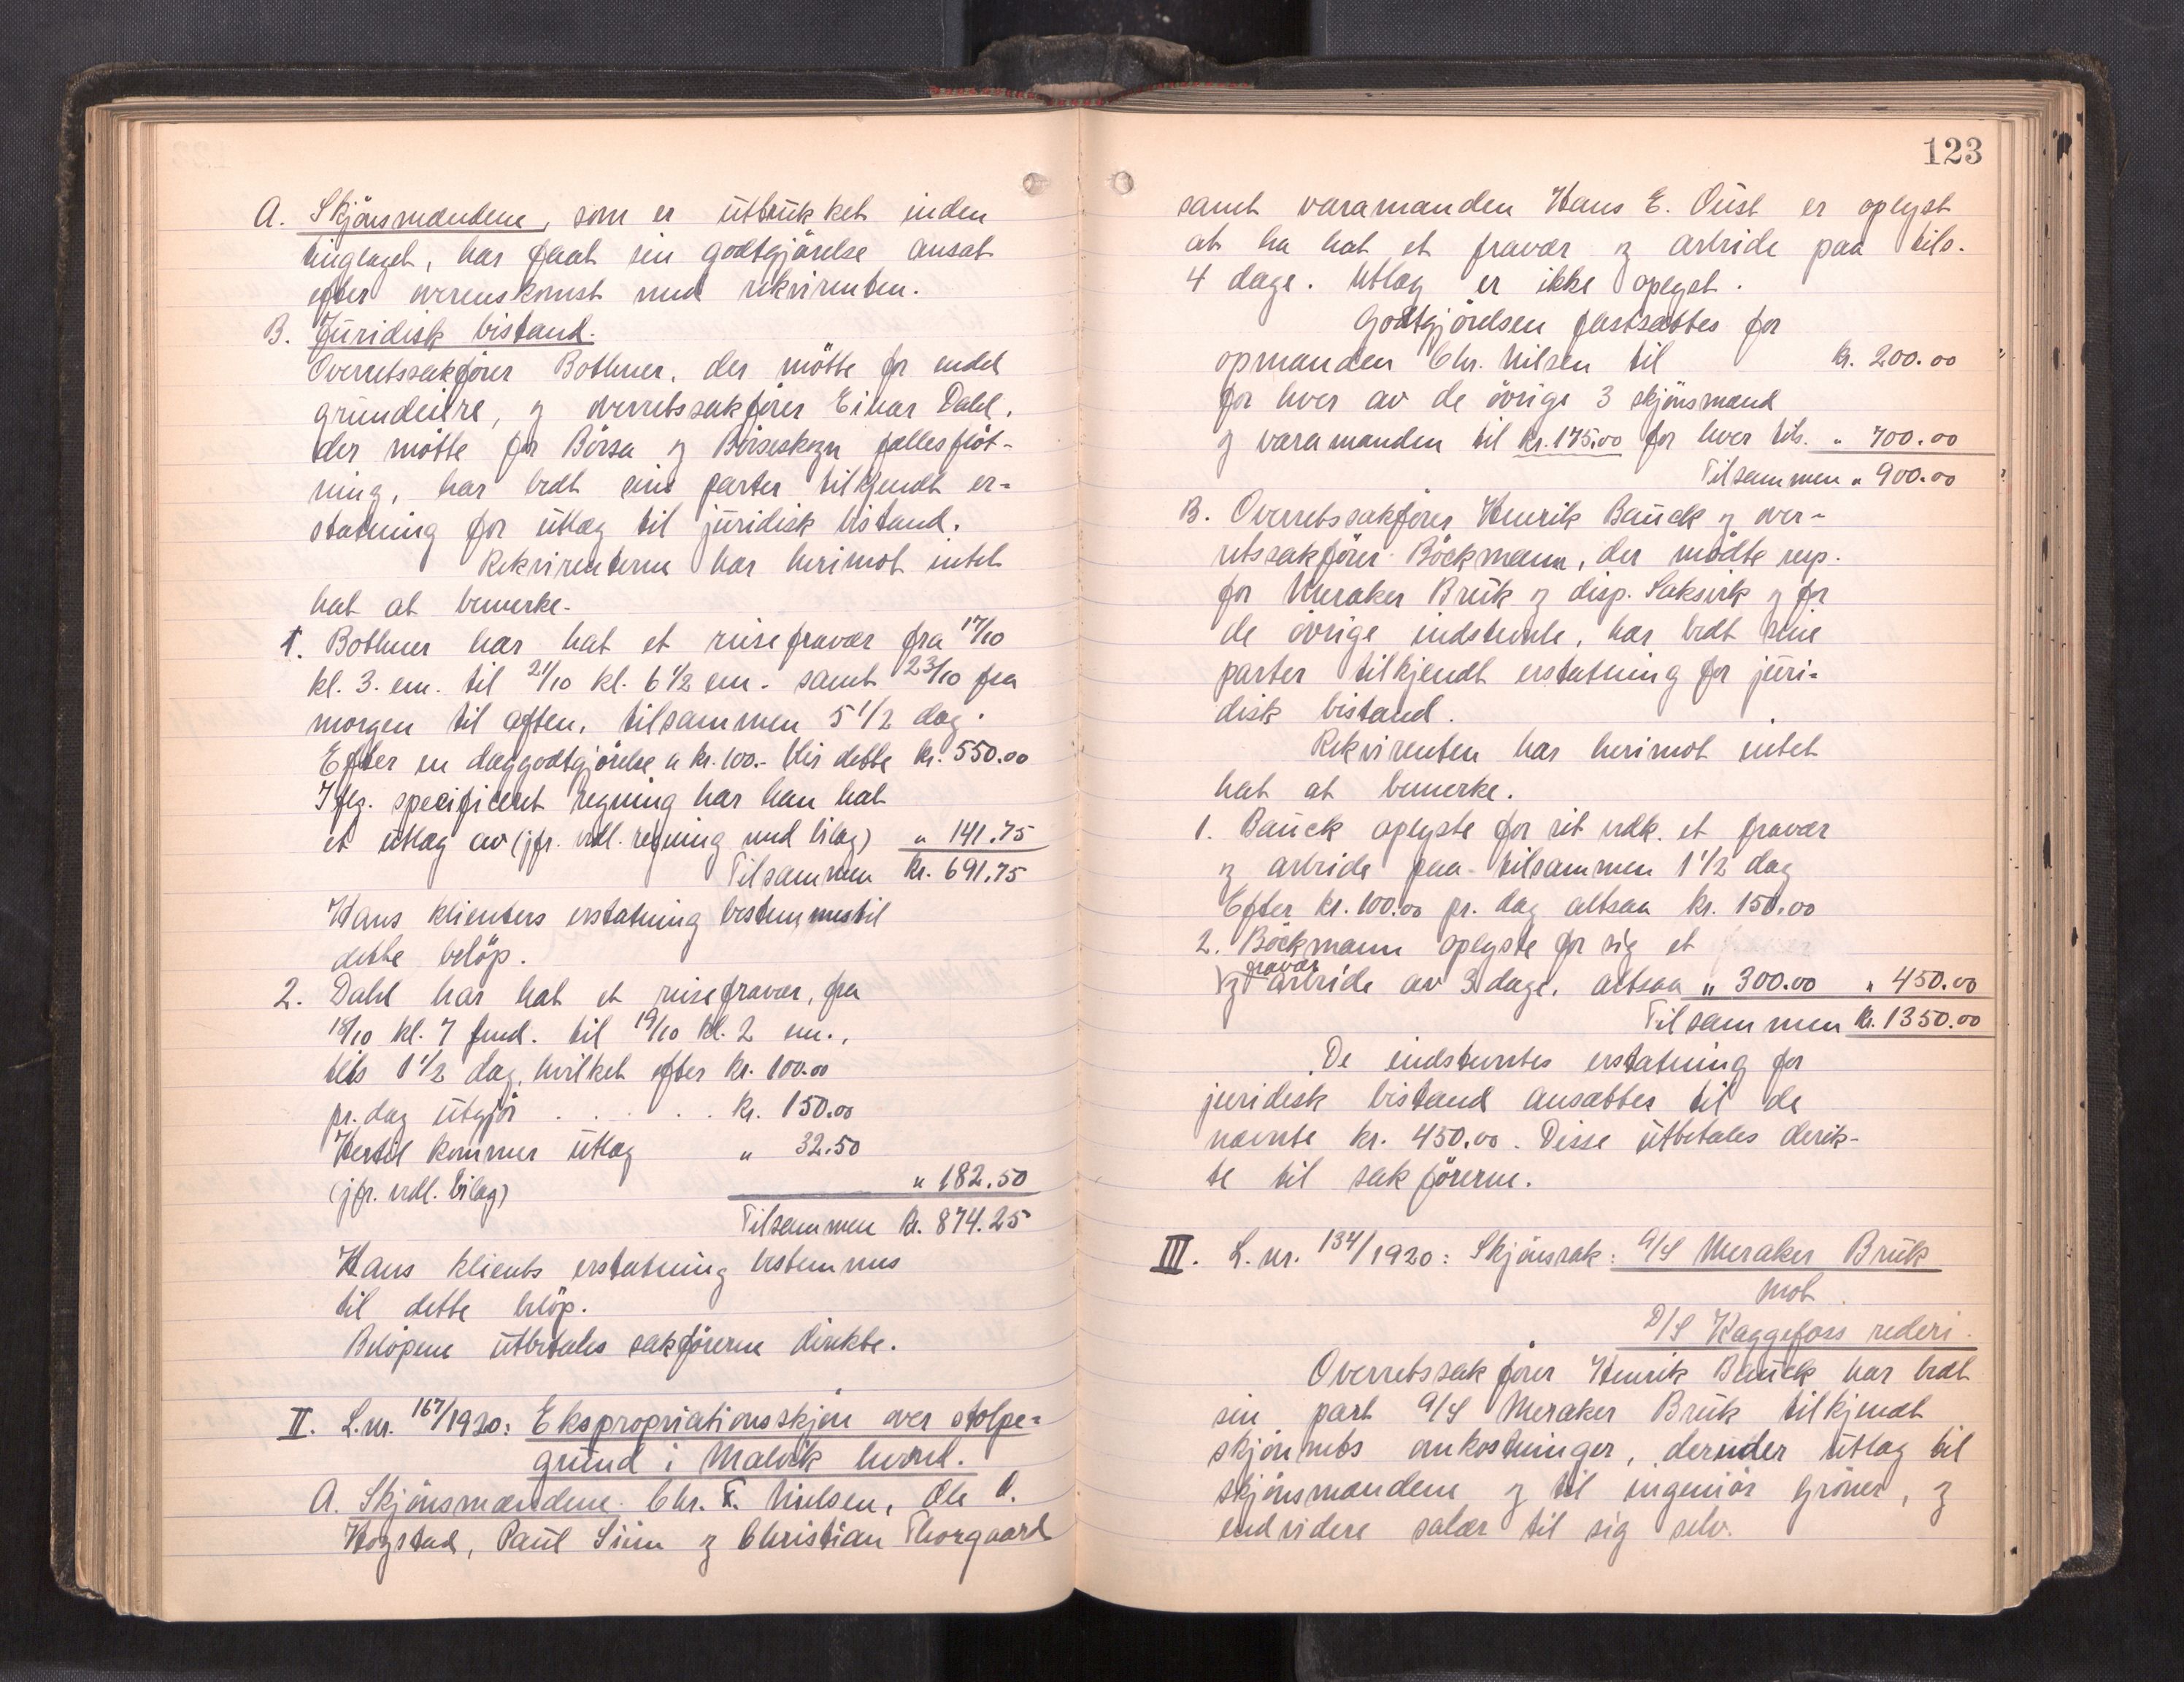 A. Skjönsmændene, som er uttrukket inden
tinglaget, har faat sin godtgjörelse ansat
efter overenskomst med rekvirenten.
B. Juridisk bistand.
Overretssakförer Bothner, der mötte for endel
grundeiere, og overretssakförer Einar Dahl,
der mötte for Börsa og Börseskogn fællesflöt-
ning, har bedt sine parter tilkjendt er-
statning for utlæg til juridisk bistand.
Rekvirenterne har herimot intet
hat at bemerke.
1. Bothner har hat et reisefravær fra 17/10
kl. 3. em. til 21/10 kl. 6 1/2 em. samt 23/10 fra
morgen til aften, tilsammen 5 1/2 dag.
Efter en daggodtgjörelse a kr. 100.- blir dette kr. 550.00
Iflg. specificeret regning har han hat
et utlæg av (jfr. vedl. regning med bilag) " 141.75
Tilsammen kr. 691.75
Hans klienters erstatning bestemmes til
dette belöp.
2. Dahl har hat et reisefravær, fra
18/10 kl. 7 fmd. til 19/10 kl. 2 em.,
tils 1 1/2 dag, hvilket efter kr. 100.00
pr. dag utgjör . . . . . kr. 150.00
Hertil kommer utlæg " 32.50
(jfr. vedl. bilag) " 182.50
Tilsammen kr. 874.25
Hans klients erstatning bestemmes
til dette belöp.
Belöpene utbetales sakförerne direkte.
II. L.nr. 167/1920: Ekspropriationsskjön over stolpe=
grund i Malvik herred.
A. Skjönsmændene Chr. F. Nielsen, Ole O.
Hogstad, Paul Siim og Christian Thorgaard
123
samt varamanden Hans E. Oust er oplyst
at ha hat et fravær og arbeide paa tils.
4 dage. Utlæg er ikke oplyst.
Godtgjörelsen fastsættes for
opmanden Chr. Nilsen til kr. 200.00
for hver av de övrige 3 skjönsmænd
og varamanden til kr. 175.00 for hver tils. " 700.00
Tilsammen " 900.00
B. Overretssakförer Henrik Bauck og over-
retssakförer Böckmann, der mödte resp.
for Meraker Bruk og disp. Saksvik og for
de övrige indstevnte, har bedt sine
parter tilkjendt erstatning for juri-
disk bistand.
Rekvirenten har herimot intet
hat at bemerke.
1. Bauck oplyste for sit vedk. et fravær
og arbeide paa tilsammen 1 1/2 dag
Efter kr. 100.00 pr. dag altsaa kr. 150.00
2. Böckmann oplyste for sig et
fravær
og arbeide av 3 dage, altsaa " 300.00 " 450.00
Tilsammen kr. 1350.00
De indstevntes erstatning for
juridisk bistand ansættes til de
nævnte kr. 450.00. Disse utbetales direk-
te til sakförerne.
III. L. nr. 134/1920: Skjönssak: A/S Meraker Bruk
mot
D/S Kaggefoss rederi.
Overretssakförer Henrik Bauck har bedt
sin part A/S Meraker Bruk tilkjendt
skjönnets omkostninger, derunder utlæg til
skjönsmændene og til ingeniör Gröner, og
endvidere salær til sig selv.